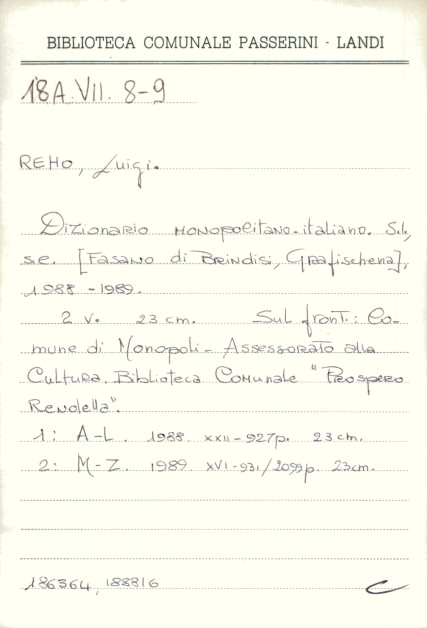 BIBLIOTECA COMUNALE PASSERINI - LANDI
18A.VII. 8-9
REHO, Luigi.
Dizionario monopolitano-italiano. S.l.,
s.e. [Fasano di Brindisi, Grafischena],
1988 - 1989.
2 v. 23 cm. Sul front.: Co-
mune di Monopoli - Assessorato alla
Cultura. Biblioteca Comunale "Prospero
Rendella".
1: A-L. 1988. XXII-927p. 23 cm.
2: M-Z. 1989. XVI-931/2099p. 23cm.
186364, 188816
C